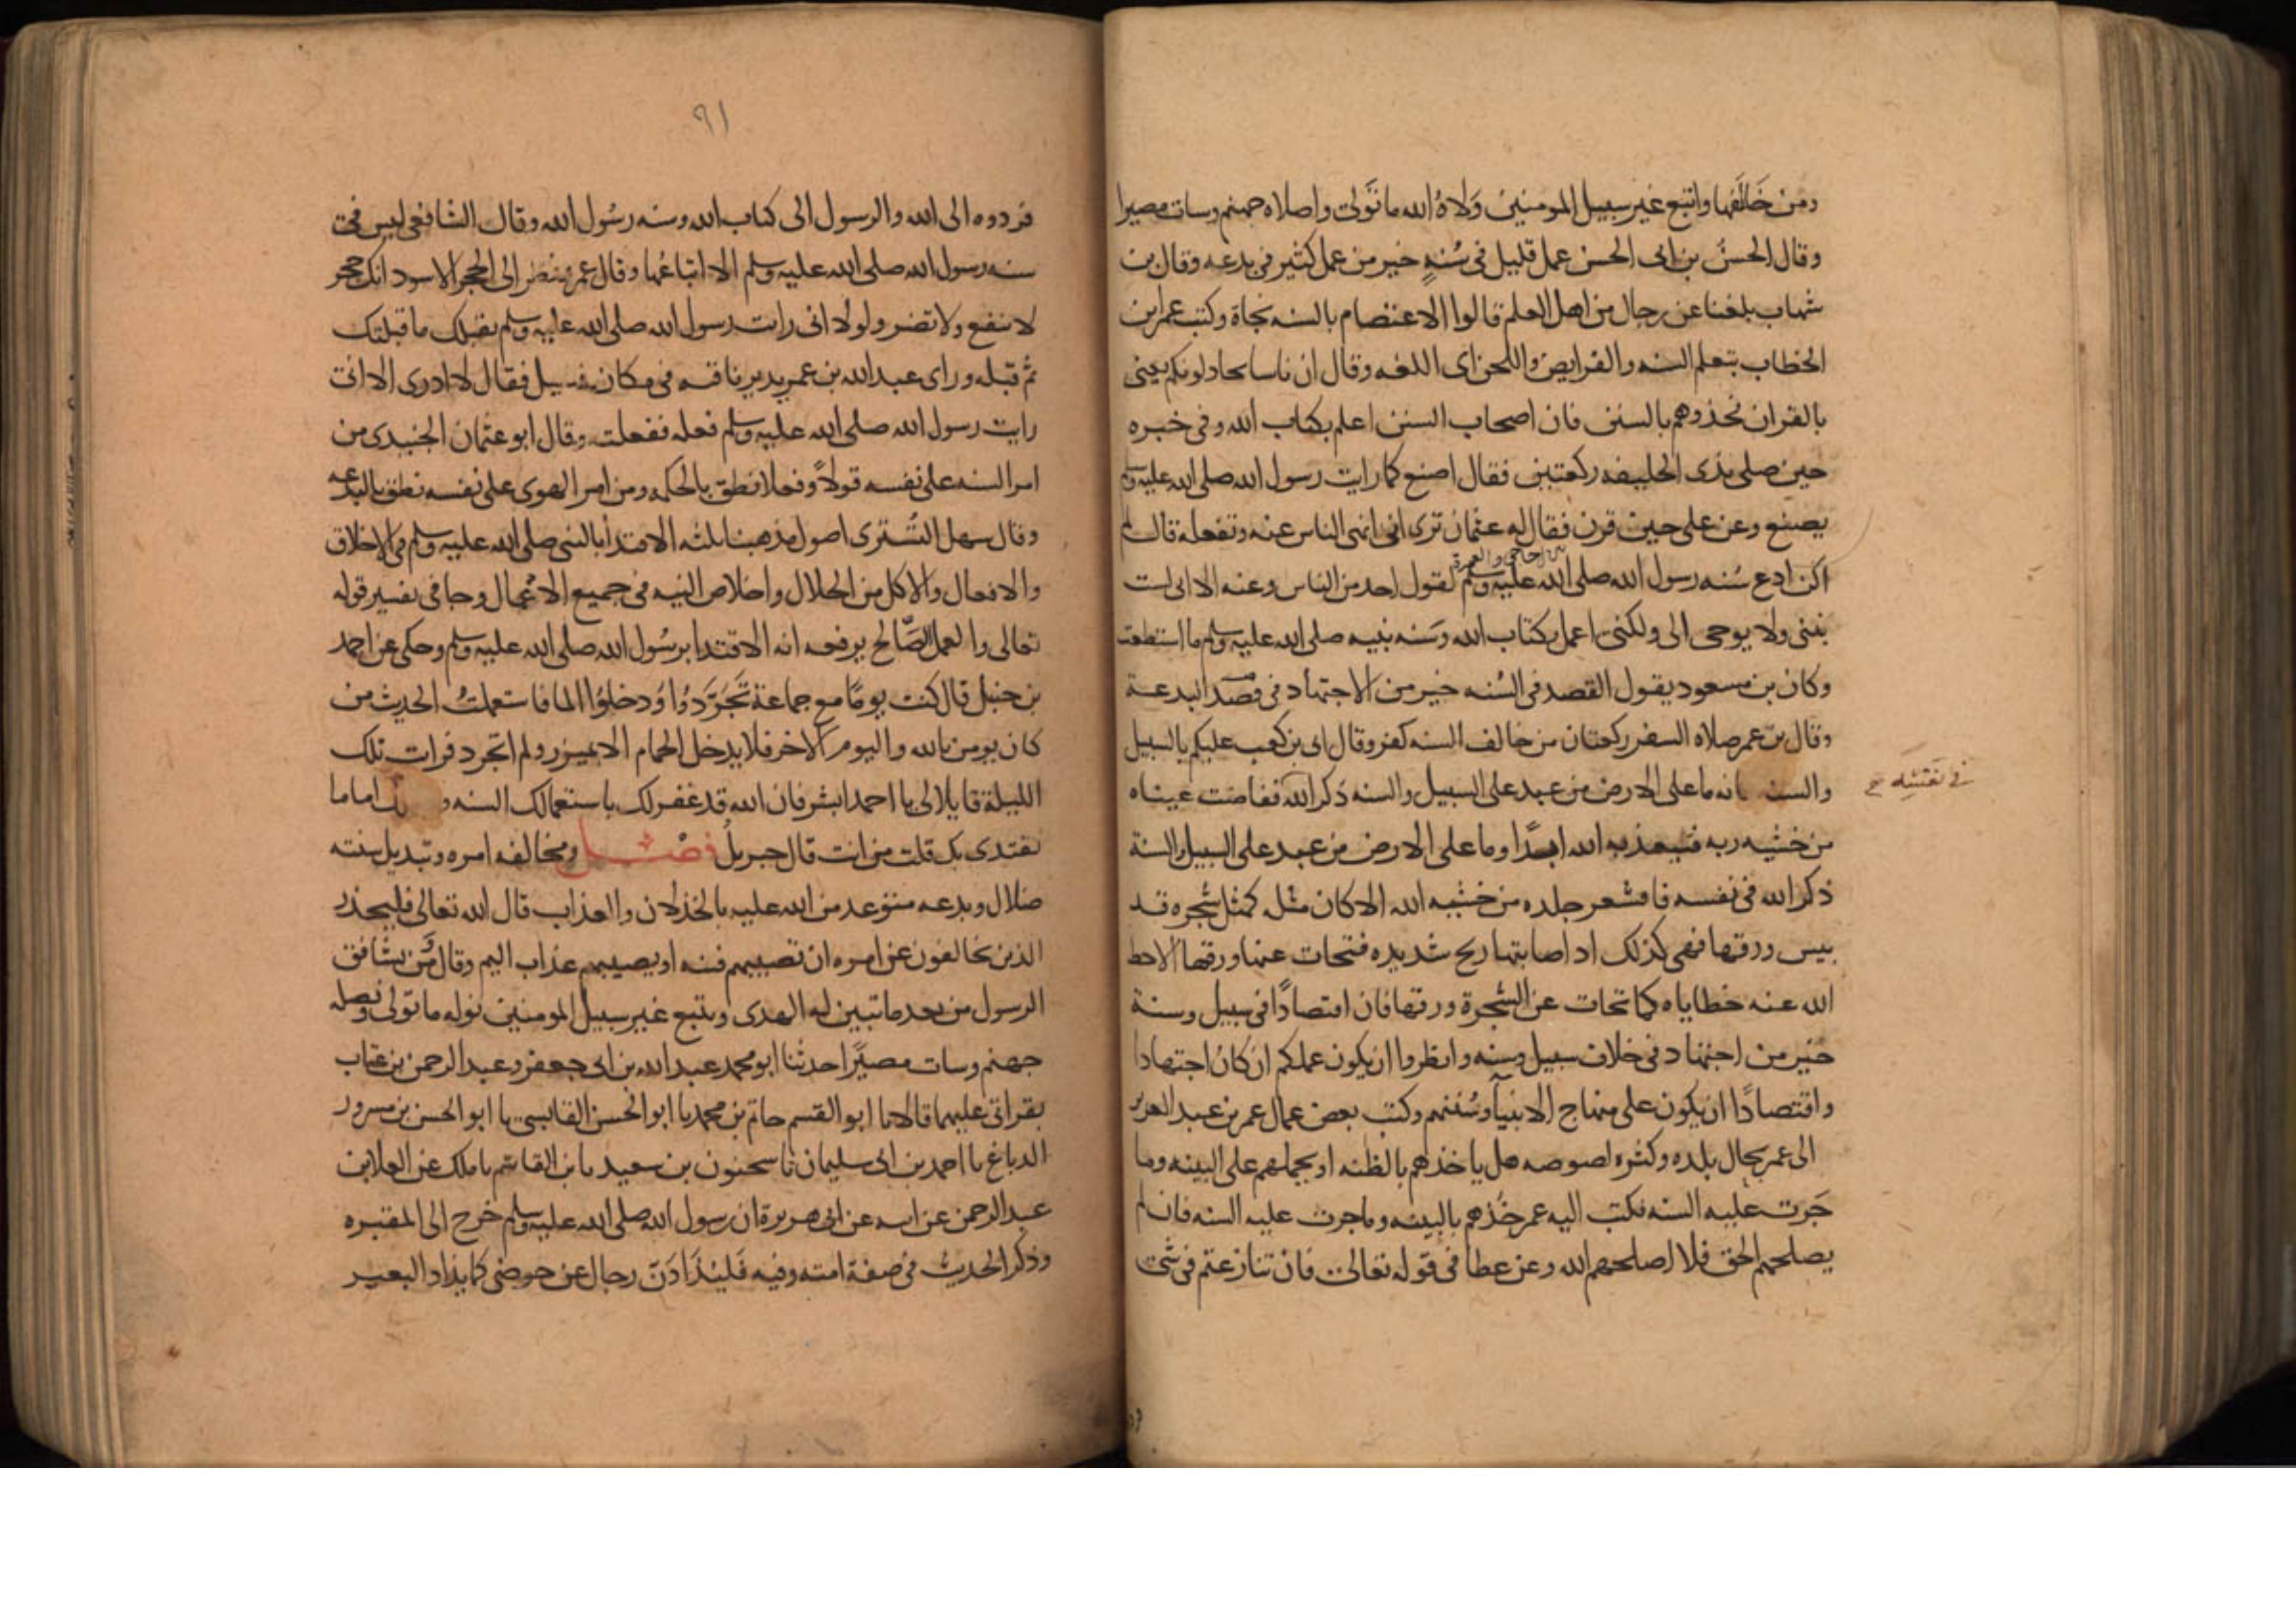 ومن خَالَفها واتبع غير سبيل المومنين وَلاهُ الله ما تَولى واصلاه جهنم وسات مصيرا
وقال الحسنُ بن ابى الحسن عمل قليل فى سُنهٍ خير من عمل كثير فى بدعه وقال بن
شهاب بلغنا عن رجال من اهل العلم قالوا الاعتصام بالسنه نجاة وكتب عمر ابن
الخطاب بتعلم السنه والفرايض واللحن اى اللغه وقال ان ناسا يجادلونكم يعنى
بالقران فخذوهم بالسنن فان اصحاب السنن اعلم بكتاب الله وفى خبره
حين صلى بذى الحليفه ركعتين فقال اصنع كما رايت رسول الله صلى الله عليه وسلم
يصنع وعن على حين قرن فقال له عثمان ترى انى انهى الناس عنه وتفعله قال لم
اكن ادع سُنه رسول الله صلى الله عليه وسلم لقول احد من الناس وعنه الا انى لست
بنبى ولا يوحى الى ولكنى اعمل بكتاب الله وسَنه نبيه صلى الله عليه وسلم ما استطعت
وكان بن مسعود يقول القصد فى السُنه خير من الاجتهاد فى البدعة
وقال بن عمر صلاه السفر ركعتان من خالف السنه كفر وقال ابى بن كعب عليكم بالسبيل
والسنه فانه ما على الارض من عبد على السبيل والسنه ذكر الله ففاضت عيناه
من خشيه ربه فيعذبه الله ابدًا وما على الارض من عبد على السبيل والسنة
ذكر الله فى نفسه فاقشعر جلده من خشيه الله الا كان مثله كمثل شجره قد
يبس ورقها فهى كذلك اد اصابتها ريح شديده فتحات عنها ورقها الا حط
الله عنه خطاياه كما تحات عن الشجرة ورقها فان اقتصادًا فى سبيل وسنة
خير من اجتهاد فى خلاف سبيل وسنه وانظروا ان يكون عملكم ان كان اجتهادا
واقتصادًا ان يكون على منهاج الانبيآ وسُنتهم وكتب بعض عمال عمر بن عبد العزيز
الى عمر بحال بلده وكثره لصوصه هل ياخذهم بالظنه او يحملهم على البينه وما
جَرت عليه السنه فكتب اليه عمر خُذهم بالبينه وما جرت عليه السنه فان لم
يصلحهم الحق فلا اصلحهم الله وعن عطا فى قوله تعالى فان تنازعتم فى شى
٩١
فردوه الى الله والرسول الى كتاب الله وسنه رسُول الله وقال الشافعى ليس فى
سنه رسول الله صلى الله عليه وسلم الا اتباعُها وقال عمر ونظر الى الحجر الاسود انك حجر
لا تنفع ولا تضر ولولا انى رايت رسول الله صلى الله عليه وسلم يقبلك ما قبلتك
ثم قبله وراى عبد الله بن عمر يدير ناقته فى مكان فسيل فقال لا ادرى الا انى
رايت رسول الله صلى الله عليه وسلم فعله ففعلت وقال ابو عثمان الجنيدى من
امر السنه على نفسه قولاً وفعلا نطق بالحكمه ومن امر الهوى على نفسه نطق بالبدعه
وقال سهل التُسترى اصول مذهبنا ثلثه الاقتدا بالنبى صلى الله عليه وسلم فى الاخلاق
والافعال والاكل من الحلال واخلاص النيه فى جميع الاعمال وجا فى تفسير قوله
تعالى والعمل الصَّالح يرفعه انه الاقتدا برسُول الله صلى الله عليه وسلم وحكى عن احمد
بن حنبل قال كنت يومًا مع جماعة تَجَرَّدُوا وُدخلوُا الما فاستعملتُ الحديث من
كان يومن بالله واليوم الاخر فلا يدخل الحمام الا بميزر ولم اتجرد فرات تلك
الليلة قايلا لى يا احمد ابشر فان الله قد غفر لك باستعمالك السنه و اماما
يقتدى بك قلت من انت قال جبريلُ فصْل ومخالفه امره وتبديل سنته
ضلال وبدعه متوعد من الله عليه بالخذلان والعذاب قال الله تعالى فليحذر
الذين يخالفون عن امره ان تصيبهم فتنه او يصيبهم عذاب اليم وقال ومَن يشاقق
الرسول من بعد ما تبين له الهدى ويتبع غير سبيل المومنين نوله ما تولى ونصله
جهنم وسات مصيرًا حدثنا ابو محمد عبد الله بن ابى جعفر وعبد الرحمن بن عتاب
بقراتى عليهما قالا نا ابو القسم حاتم بن محمد نا ابو الحسن القابسى نا ابو الحسن بن مسرور
الدباغ نا احمد بن ابى سليمان نا سحنون بن سعيد نا بن القاسم نا ملك عن العلا بن
عبد الرحمن عن ابيه عن ابى هريرة ان رسول الله صلى الله عليه وسلم خرج الى المقبره
وذكر الحديث فى صفة امته وفيه فَليُذَادَنّ رجال عن حوضى كما يذاد البعير